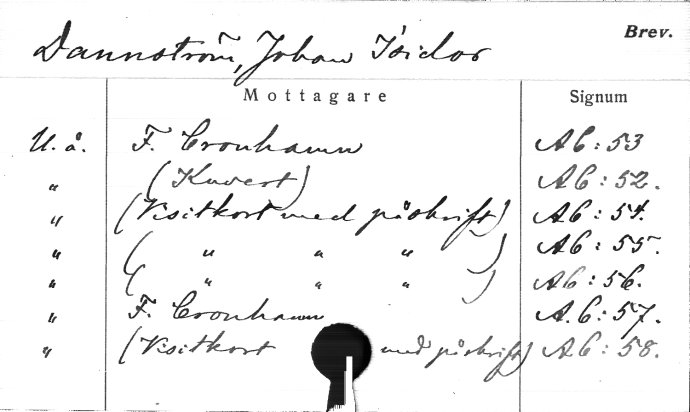 Brev.
Dannström, Johan Isidor
Mottagare Signum
U. å. F. Cronhamn Ab: 53
" (Kuvert) Ab: 52.
" (Visitkort med påskrift) Ab: 54.
" ( " " " ) Ab: 55.
" ( " " " ) Ab: 56.
" F. Cronhamn A.b: 57.
" (Visitkort med påskrift) Ab: 58.